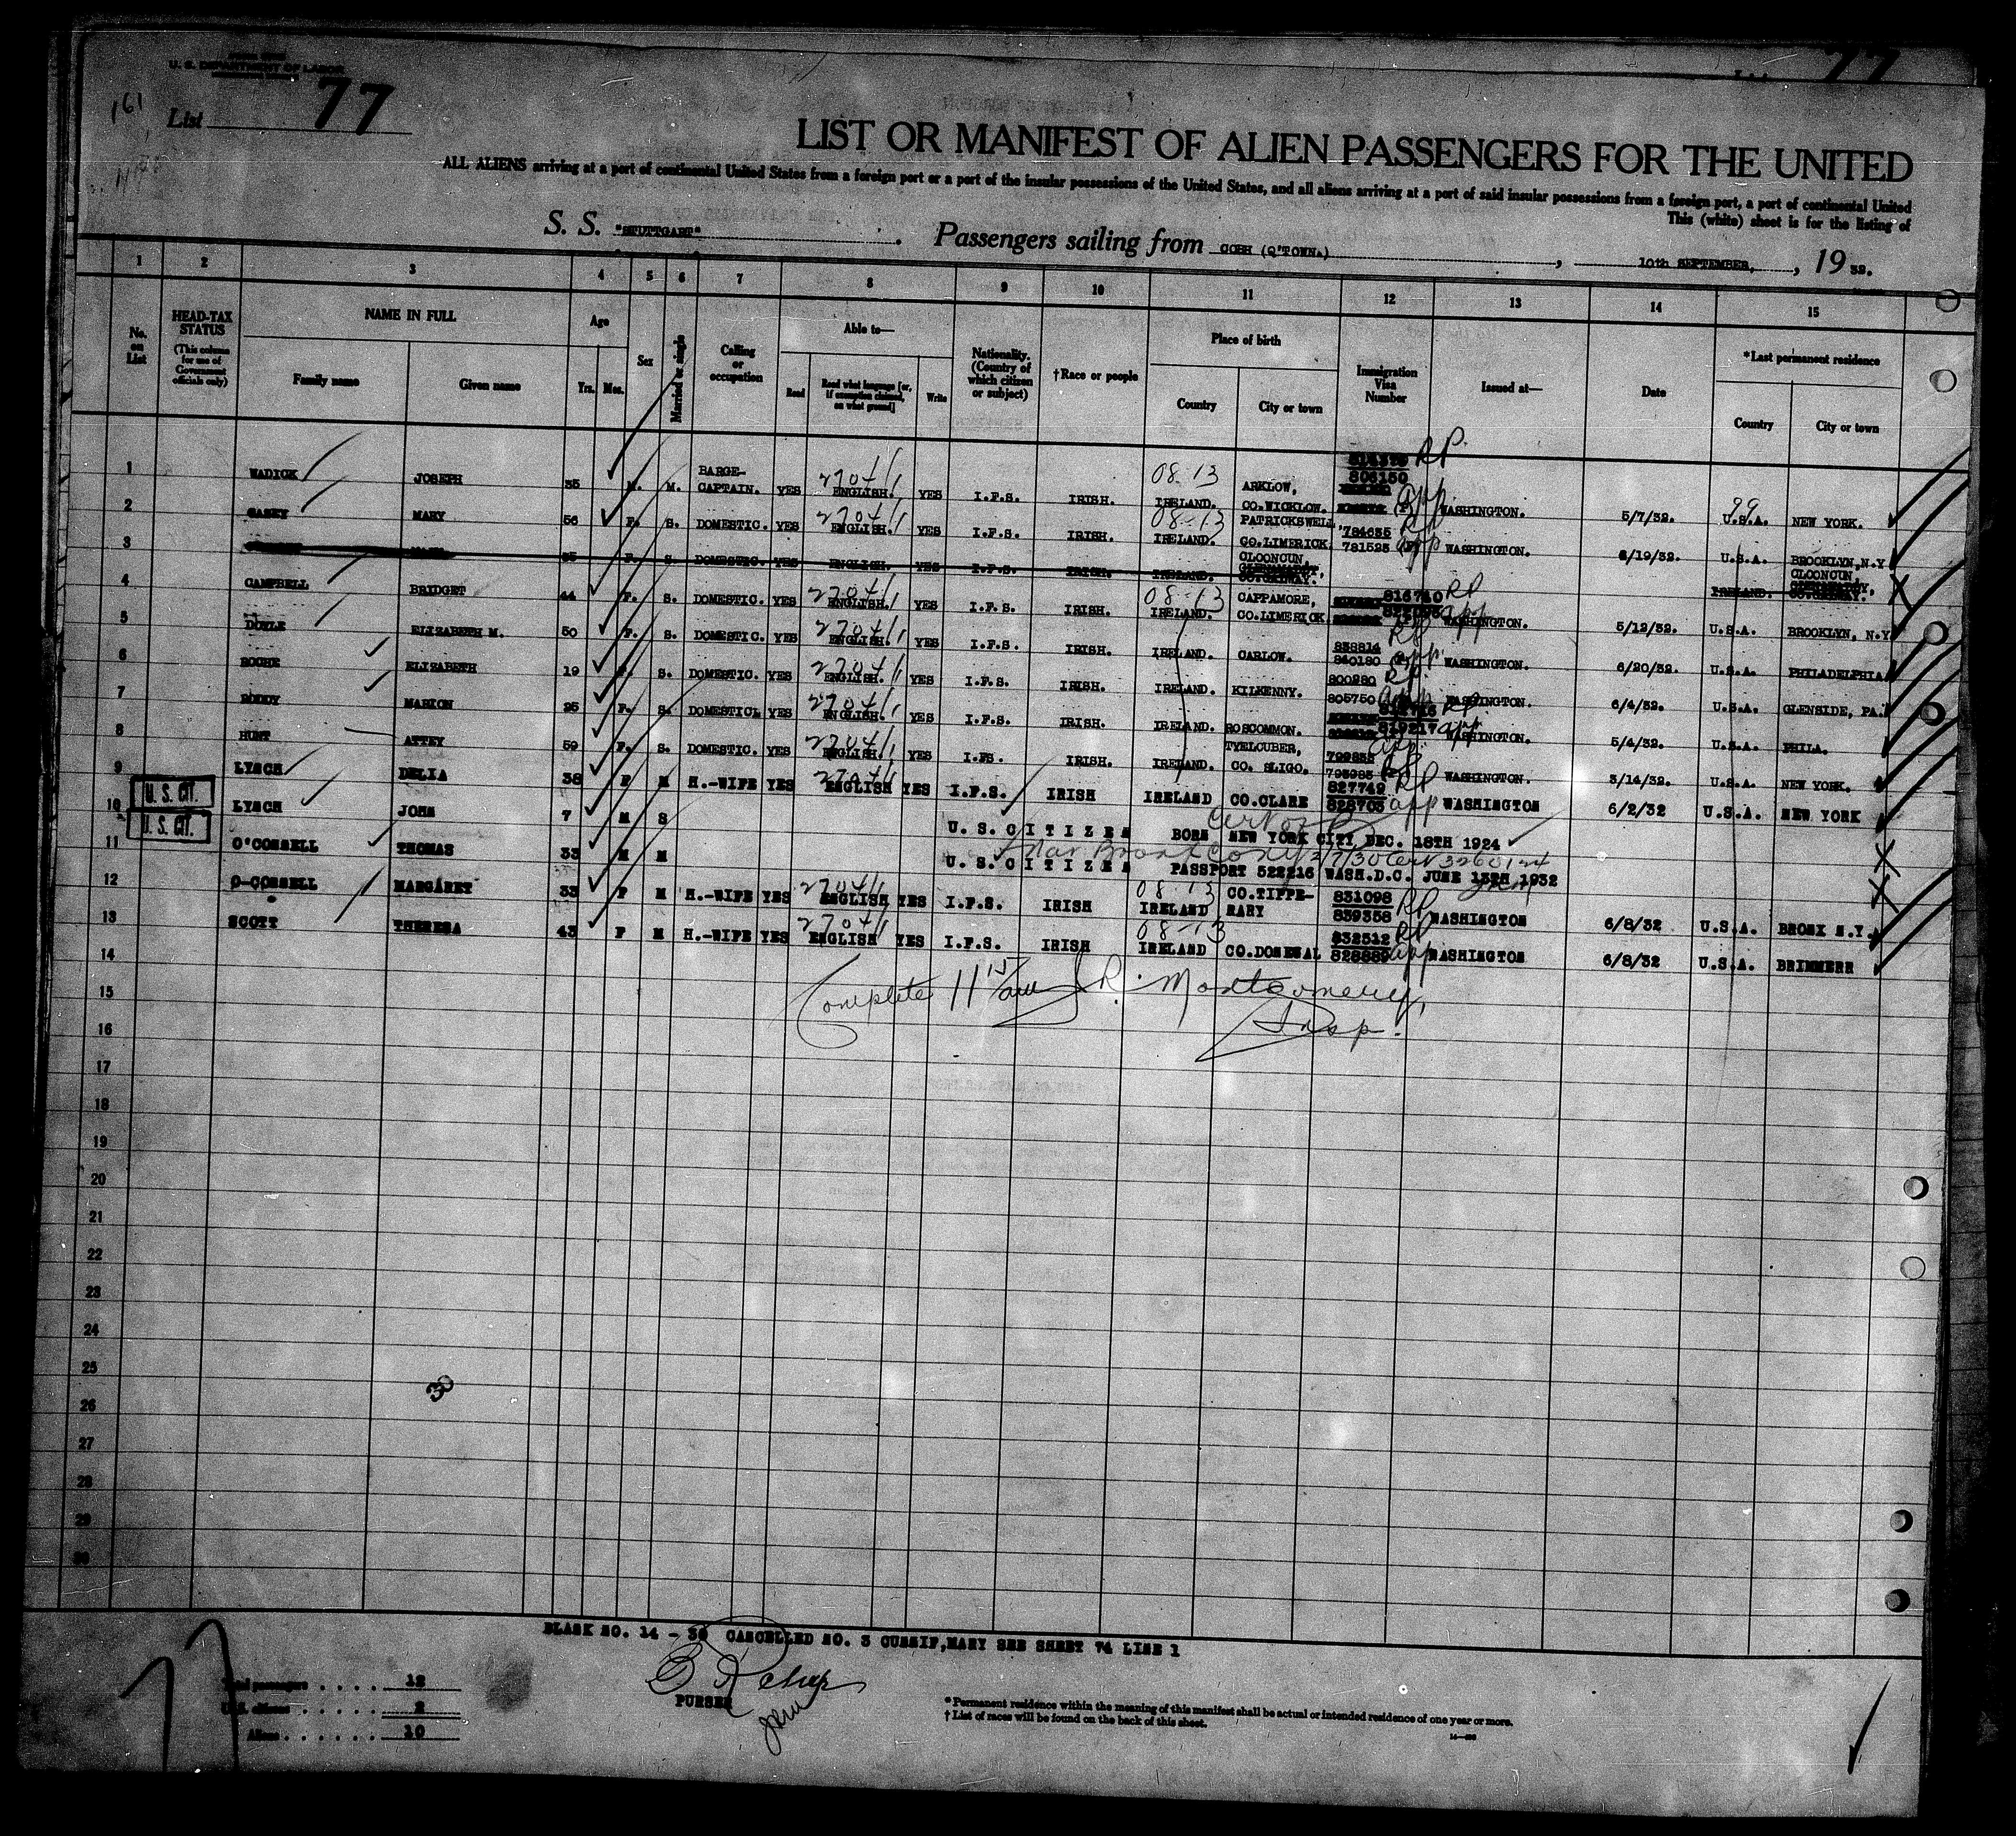 U. S. DEPARTMENT OF LABOR
161
List 77
77
LIST OR MANIFEST OF ALIEN PASSENGERS FOR THE UNITED
ALL ALIENS arriving at a port of continental United States from a foreign port or a port of the insular possessions of the United States, and all aliens arriving at a port of said insular possessions from a foreign port, a port of continental United
This (white) sheet is for the listing of
S. S. "STUTTGART" . Passengers sailing from COBH (Q'TOWN.) , 10th SEPTEMBER, , 19 32.
1 2 3 4 5 6 7 8 9 10 11 12 13 14 15
No. on List
HEAD-TAX STATUS (This column for use of Government officials only)
NAME IN FULL Family name Given name
Age Yrs. Mos.
Sex
Married or single
Calling or occupation
Able to— Read Read what language [or, if exemption claimed, on what ground] Write
Nationality. (Country of which citizen or subject)
†Race or people
Place of birth Country City or town
Immigration Visa Number
Issued at—
Date
*Last permanent residence Country City or town
1 WADICK JOSEPH 35 M. M. BARGE-CAPTAIN. YES ENGLISH. YES I.F.S. IRISH. IRELAND. ARKLOW, CO.WICKLOW. 806150 RP WASHINGTON. 5/7/32. U.S.A. NEW YORK.
2 CASEY MARY 56 F. S. DOMESTIC. YES ENGLISH. YES I.F.S. IRISH. IRELAND. PATRICKSWELL, CO.LIMERICK. 784635 781523 WASHINGTON. 6/19/32. U.S.A. BROOKLYN,N.Y
3 F. S. DOMESTIC. YES ENGLISH. YES I.F.S. IRISH. IRELAND. CLOONCUN, CO.GALWAY. IRELAND. CLOONCUN,
4 CAMPBELL BRIDGET 44 F. S. DOMESTIC. YES ENGLISH. YES I.F.S. IRISH. IRELAND. CAPPAMORE, CO.LIMERICK. 816740 RP app WASHINGTON. 5/12/32. U.S.A. BROOKLYN, N.Y
5 DOYLE ELIZABETH M. 50 F. S. DOMESTIC. YES ENGLISH. YES I.F.S. IRISH. IRELAND. CARLOW. 838814 840180 RP app WASHINGTON. 6/20/32. U.S.A. PHILADELPHIA
6 ROCHE ELIZABETH 19 F. S. DOMESTIC. YES ENGLISH. YES I.F.S. IRISH. IRELAND. KILKENNY. 800280 805750 RP app WASHINGTON. 6/4/32. U.S.A. GLENSIDE, PA.
7 RODDY MARION 25 F. S. DOMESTIC. YES ENGLISH. YES I.F.S. IRISH. IRELAND. ROSCOMMON. 819217 RP app WASHINGTON. 5/4/32. U.S.A. PHILA.
8 HUNT ATTEY 59 F. S. DOMESTIC. YES ENGLISH. YES I.FS. IRISH. IRELAND. TYELCUBER, CO. SLIGO. WASHINGTON. 3/14/32. U.S.A. NEW YORK.
9 LYNCH DELIA 38 F M H.-WIFE YES ENGLISH YES I.F.S. IRISH IRELAND CO.CLARE 827749 828703 RP app WASHINGTON 6/2/32 U.S.A. NEW YORK
10 U. S. CIT. LYNCH JOHN 7 M S U. S. CITIZEN BORN NEW YORK CITY DEC. 18TH 1924
11 U. S. CIT. O'CONNELL THOMAS 33 M M U. S. CITIZEN PASSPORT 522216 WASH.D.C. JUNE 15TH 1932
12 O-CONNELL MARGARET 33 F M H.-WIFE YES ENGLISH YES I.F.S. IRISH IRELAND CO.TIPPE-RARY 831098 839358 RP WASHINGTON 6/8/32 U.S.A. BRONX N.Y.
13 SCOTT THERESA 43 F M H.-WIFE YES ENGLISH YES I.F.S. IRISH IRELAND CO.DONEGAL 832512 828889 RP app WASHINGTON 6/8/32 U.S.A. BRIMMERR
14
Complete 11 15/am J.R. Montgomery,
15
Insp.
16
17
18
19
20
21
22
23
24
25
30
26
27
28
29
30
BLANK NO. 14 - 30 CANCELLED NO. 3 CUNNIF,MARY SEE SHEET 74 LINE 1
PURSER
Total passengers . . . . 12
U.S. citizens . . . . . 2
Aliens . . . . . . 10
* Permanent residence within the meaning of this manifest shall be actual or intended residence of one year or more.
† List of races will be found on the back of this sheet.